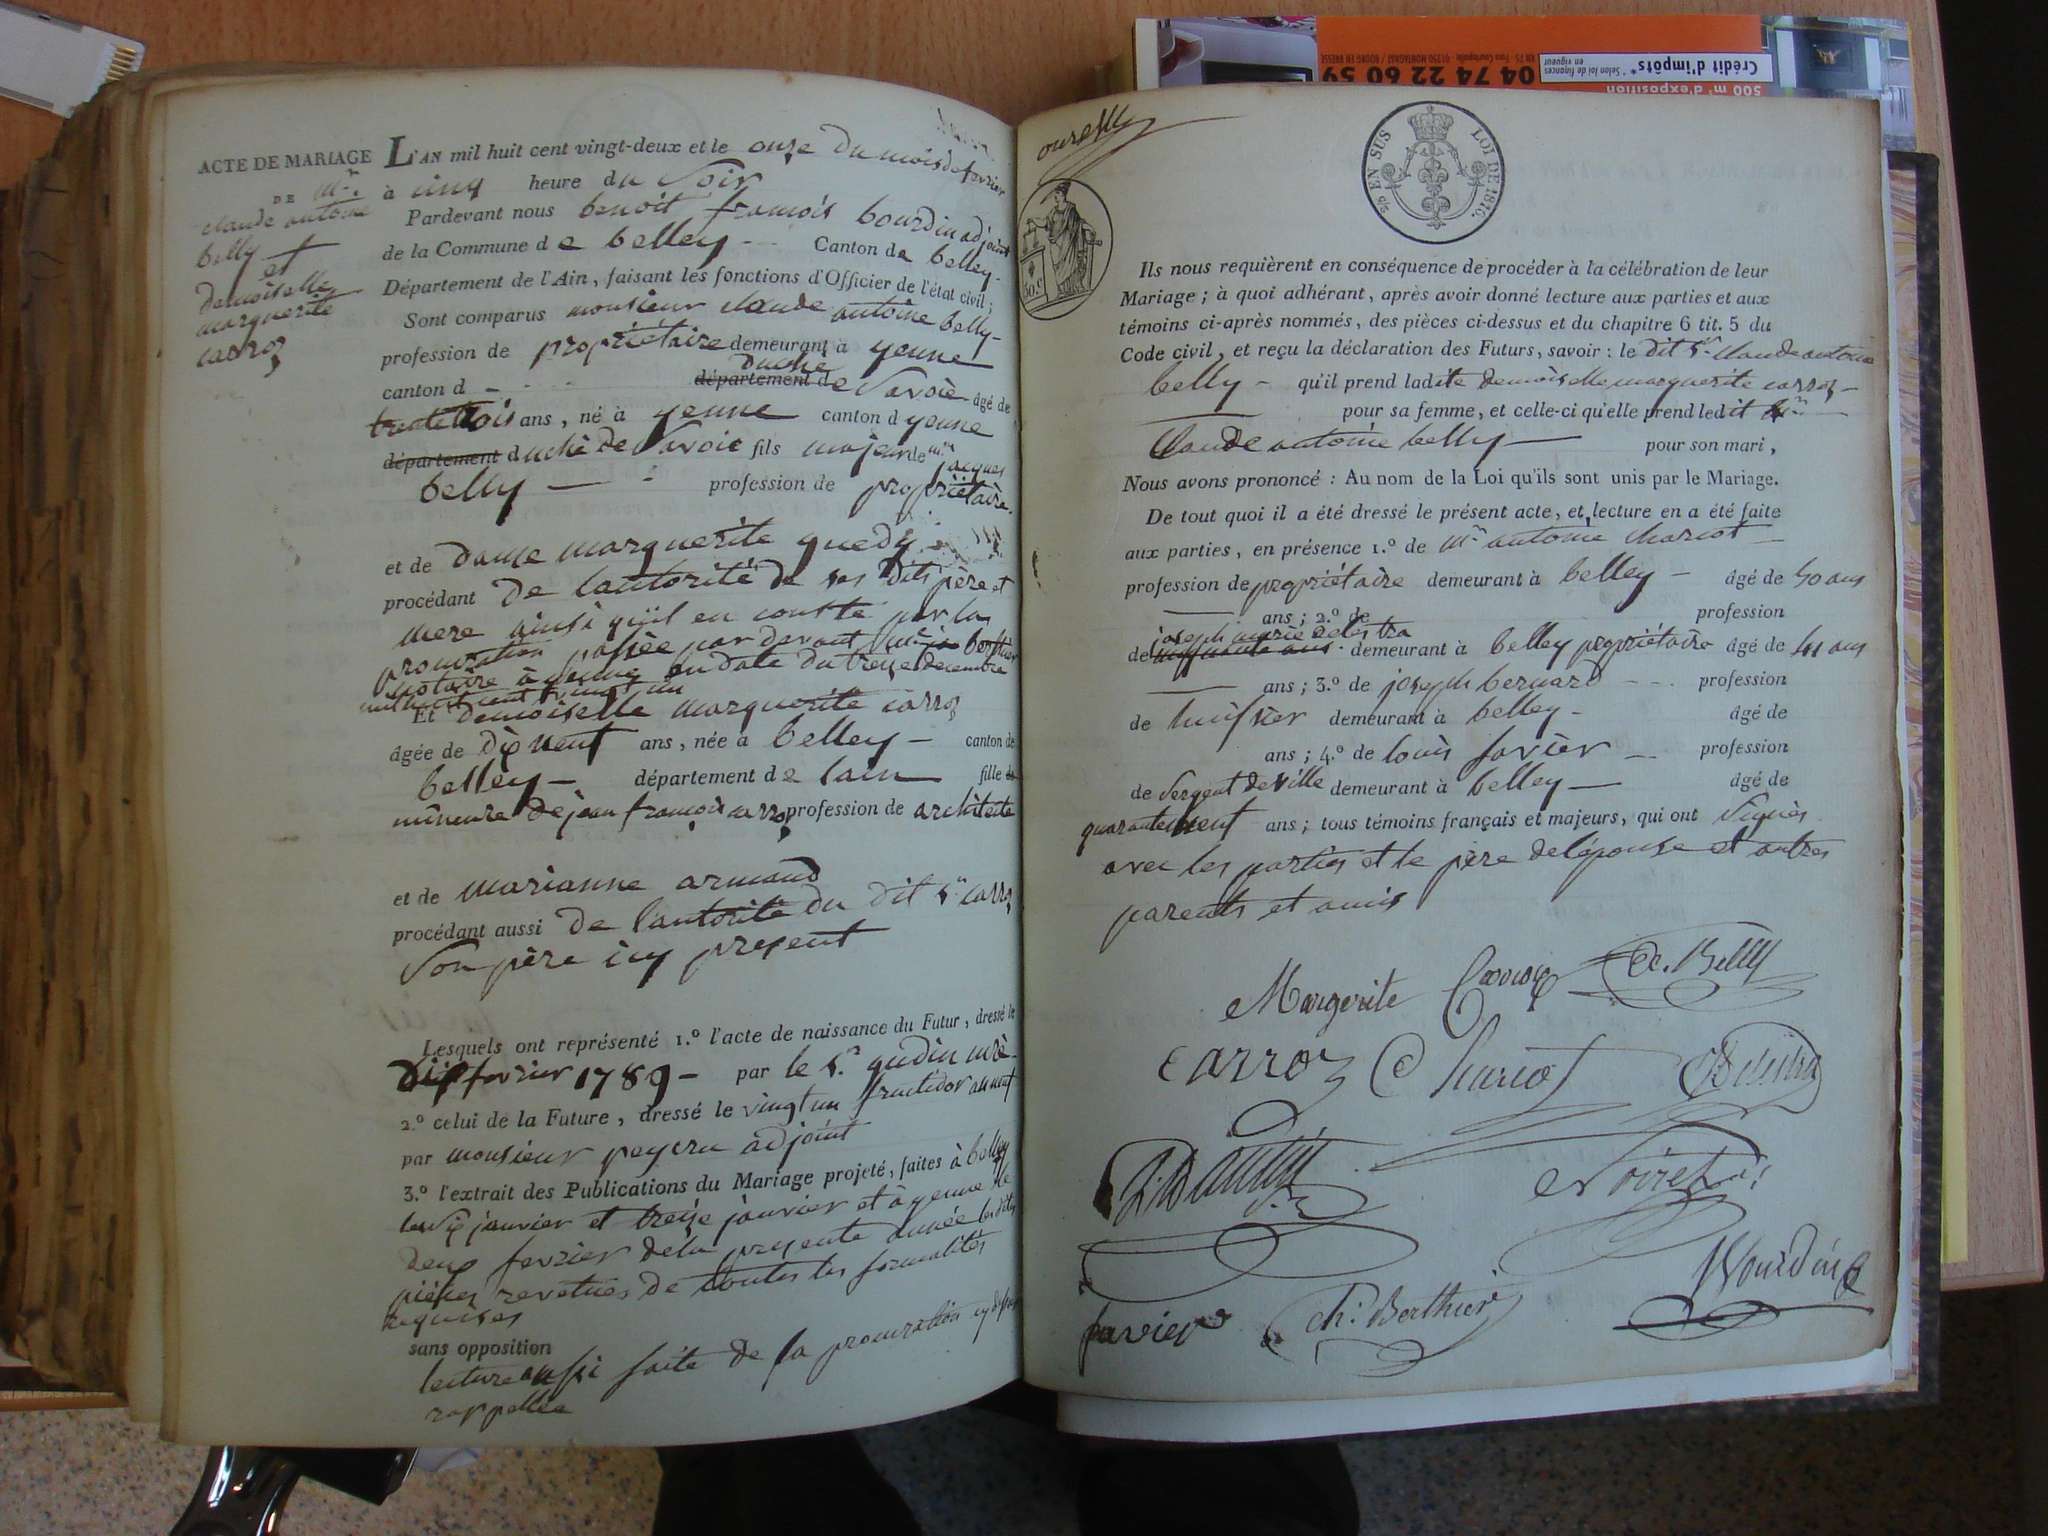 ACTE DE MARIAGE
DE Mr.
claude antoine
belly
et
demoiselle
marguerite
carroz
L'AN mil huit cent vingt-deux et le onze du mois de fevrier
à cinq heure du Soir
Pardevant nous benoit françois bourdin adjoint
de la Commune de belley - Canton de belley -
Département de l'Ain, faisant les fonctions d'Officier de l'état civil;
Sont comparus monsieur claude antoine belly -
profession de propriétaire demeurant à yenne
canton d - duché
département de Savoie âgé de
trente trois ans, né à yenne canton d yenne
département duché de Savoie fils majeur de mr. jacques
belly - profession de propriétaire.
et de dame marguerite guedy
procédant de lautorité de ses dits père et
mere ainsi qu'il en conste par la
procuration passée par devant me berthier
notaire à yenne en date du treize decembre
mil huit cent vingt un
Et demoiselle marguerite carroz
âgée de dix neuf ans, née à belley - canton de
belley - département de lain fille de
mineure de jean françois carroz profession de architecte
et de marianne armand
procédant aussi de l'autorité du dit Sr carroz
Son père icy present
Lesquels ont représenté 1.º l'acte de naissance du Futur, dressé le
dix fevrier 1789 - par le Sr. gudin
2.º celui de la Future, dressé le vingt un fructidor an neuf
par monsieur peycru adjoint
3.º l'extrait des Publications du Mariage projeté, faites à belley
les six janvier et treize janvier et à yenne le
deux fevrier de la presente année les dites
pièces revetues de toutes les formalités
requises
sans opposition
lecture aussi faite de la procuration cy dessus
rappellée
EN SUS LOI DE 1816.
50.c
Ils nous requièrent en conséquence de procéder à la célébration de leur
Mariage; à quoi adhérant, après avoir donné lecture aux parties et aux
témoins ci-après nommés, des pièces ci-dessus et du chapitre 6 tit. 5 du
Code civil, et reçu la déclaration des Futurs, savoir: le dit Sr. claude antoine
belly - qu'il prend ladite demoiselle marguerite carroz -
pour sa femme, et celle-ci qu'elle prend ledit
Claude antoine belly pour son mari,
Nous avons prononcé: Au nom de la Loi qu'ils sont unis par le Mariage.
De tout quoi il a été dressé le présent acte, et lecture en a été faite
aux parties, en présence 1.º de Mr antoine chariot -
profession de propriétaire demeurant à belley - âgé de 50 ans
ans; 2.º de profession
joseph marie
de demeurant à belley propriétaire âgé de 41 ans
ans; 3.º de joseph bernard - profession
de huissier demeurant à belley - âgé de
ans; 4.º de louis favier - profession
de Sergent de ville demeurant à belley - âgé de
quarante neuf ans; tous témoins français et majeurs, qui ont Signés
avec les parties et le père de lépouse et autres
parents et amis
Margerite Carroz
C. Belly
carroz
Chariot
favier
Ch: Berthier
Bourdin
Crédit d'impôts*
* Selon loi de finances en vigueur
04 74 22 60 59
500 m² d'exposition